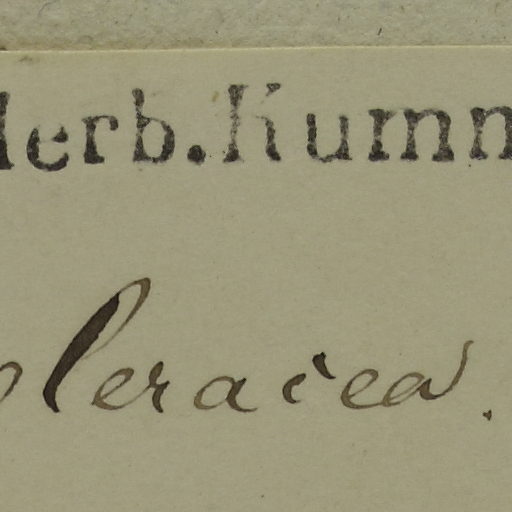 Herb. Kumm
oleracea.